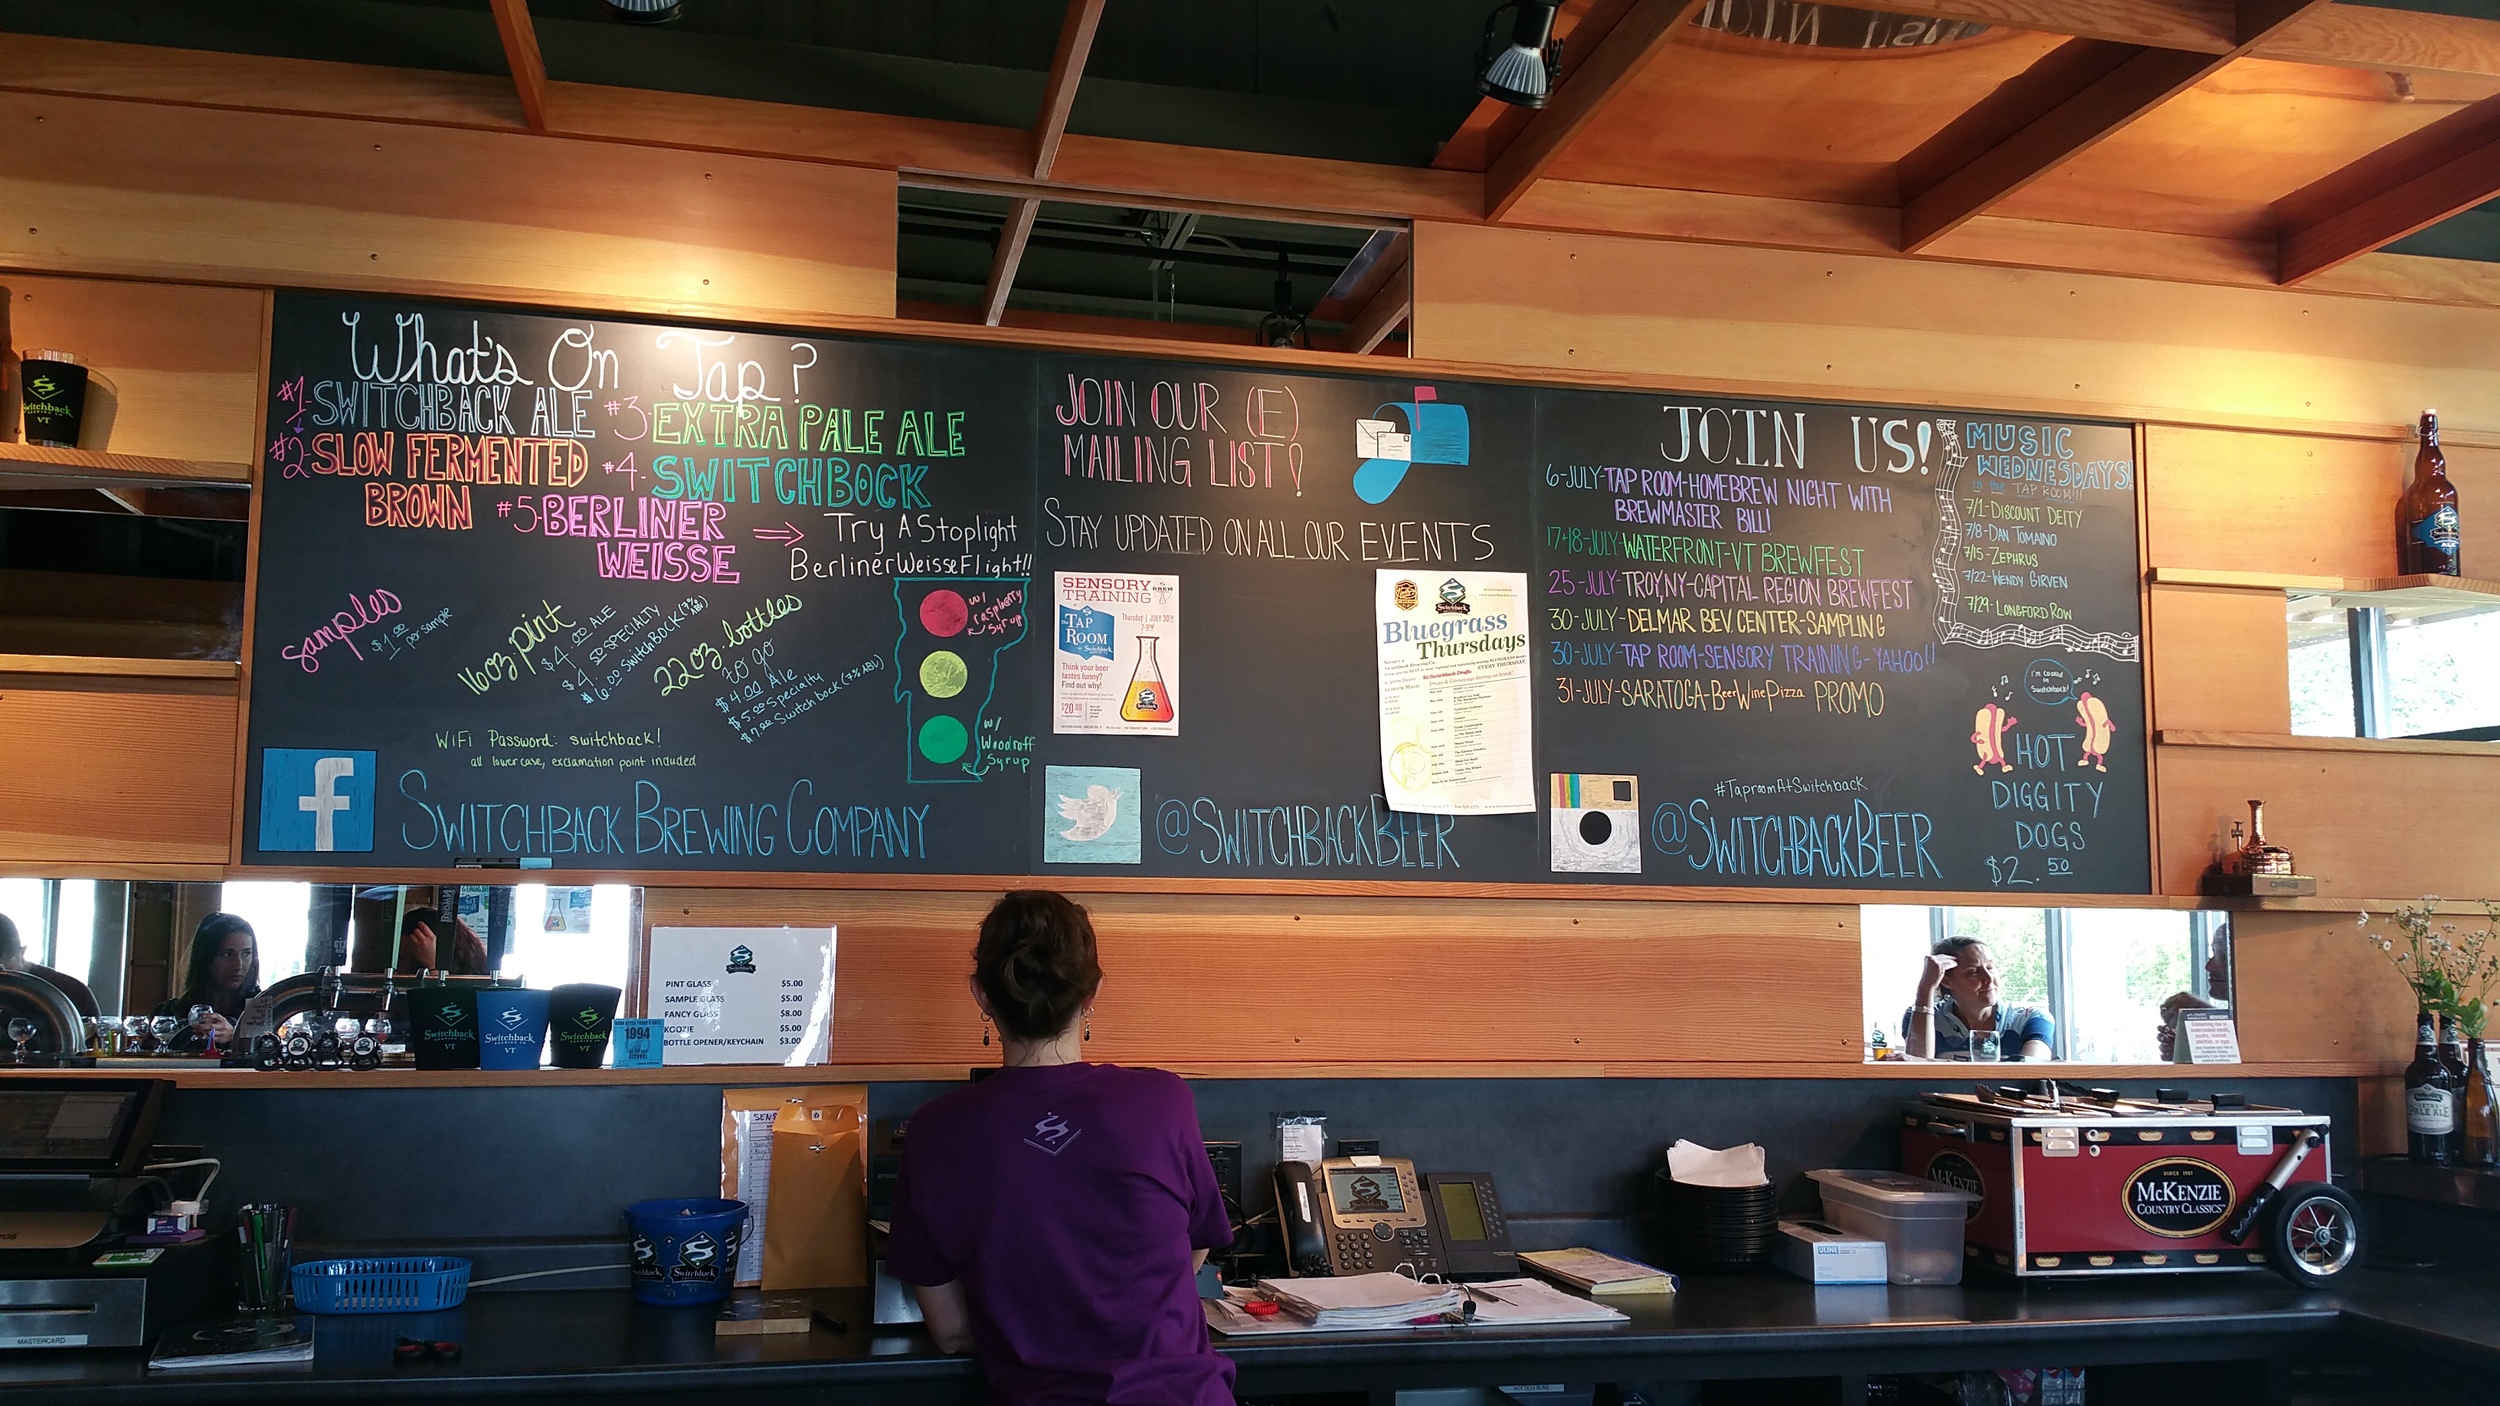 What's On Tap?
#1-SWITCHBACK ALE
#2-SLOW FERMENTED
BROWN
#3-EXTRA PALE ALE
#4-SWITCHBOCK
#5-BERLINER
WEISSE
Try A Stoplight
Berliner Weisse Flight!!
w/
raspberry
syrup
w/
Woodruff
Syrup
samples
$1.00 per sample
16oz. pint
$4.00 ALE
$4.50 SPECIALTY
$6.00 SWITCHBOCK (7% ABV)
22oz. bottles
to go
$4.00 Ale
$5.00 Specialty
$7.00 Switchbock (7% ABV)
WiFi Password: switchback!
all lowercase, exclamation point included
f
SWITCHBACK BREWING COMPANY
JOIN OUR (E)
MAILING LIST!
STAY UPDATED ON ALL OUR EVENTS
SENSORY
TRAINING
BREW
Thursday | JULY 30TH
7-9PM
The TAP
ROOM
Switchback
Think your beer
tastes funny?
Find out why!
$20.00
Bluegrass
Thursdays
EVERY THURSDAY
@SWITCHBACKBEER
JOIN US!
6-JULY-TAP ROOM-HOMEBREW NIGHT WITH
BREWMASTER BILL!
17+18-JULY-WATERFRONT-VT BREWFEST
25-JULY-TROY,NY-CAPITAL REGION BREWFEST
30-JULY-DELMAR BEV. CENTER-SAMPLING
30-JULY-TAP ROOM-SENSORY TRAINING-YAHOO!!
31-JULY-SARATOGA-BeerWinePizza PROMO
#TaproomAtSwitchback
@SWITCHBACKBEER
MUSIC
WEDNESDAYS!
in the TAP ROOM!!!
7/1-DISCOUNT DEITY
7/8-DAN TOMAINO
7/15-ZEPHRUS
7/22-WENDY GIRVEN
7/29-LONGFORD ROW
I'm cooked
in
Switchback!
HOT
DIGGITY
DOGS
$2.50
Switchback
VT
ALE
Switchback
PINT GLASS $5.00
SAMPLE GLASS $5.00
FANCY GLASS $8.00
KOOZIE $5.00
BOTTLE OPENER/KEYCHAIN $3.00
Switchback
VT
Switchback
VT
Switchback
1994
Switchback
MASTERCARD
SINCE 1907
McKENZIE
COUNTRY CLASSICS
McKENZIE
ULINE
EXTRA
PALE ALE